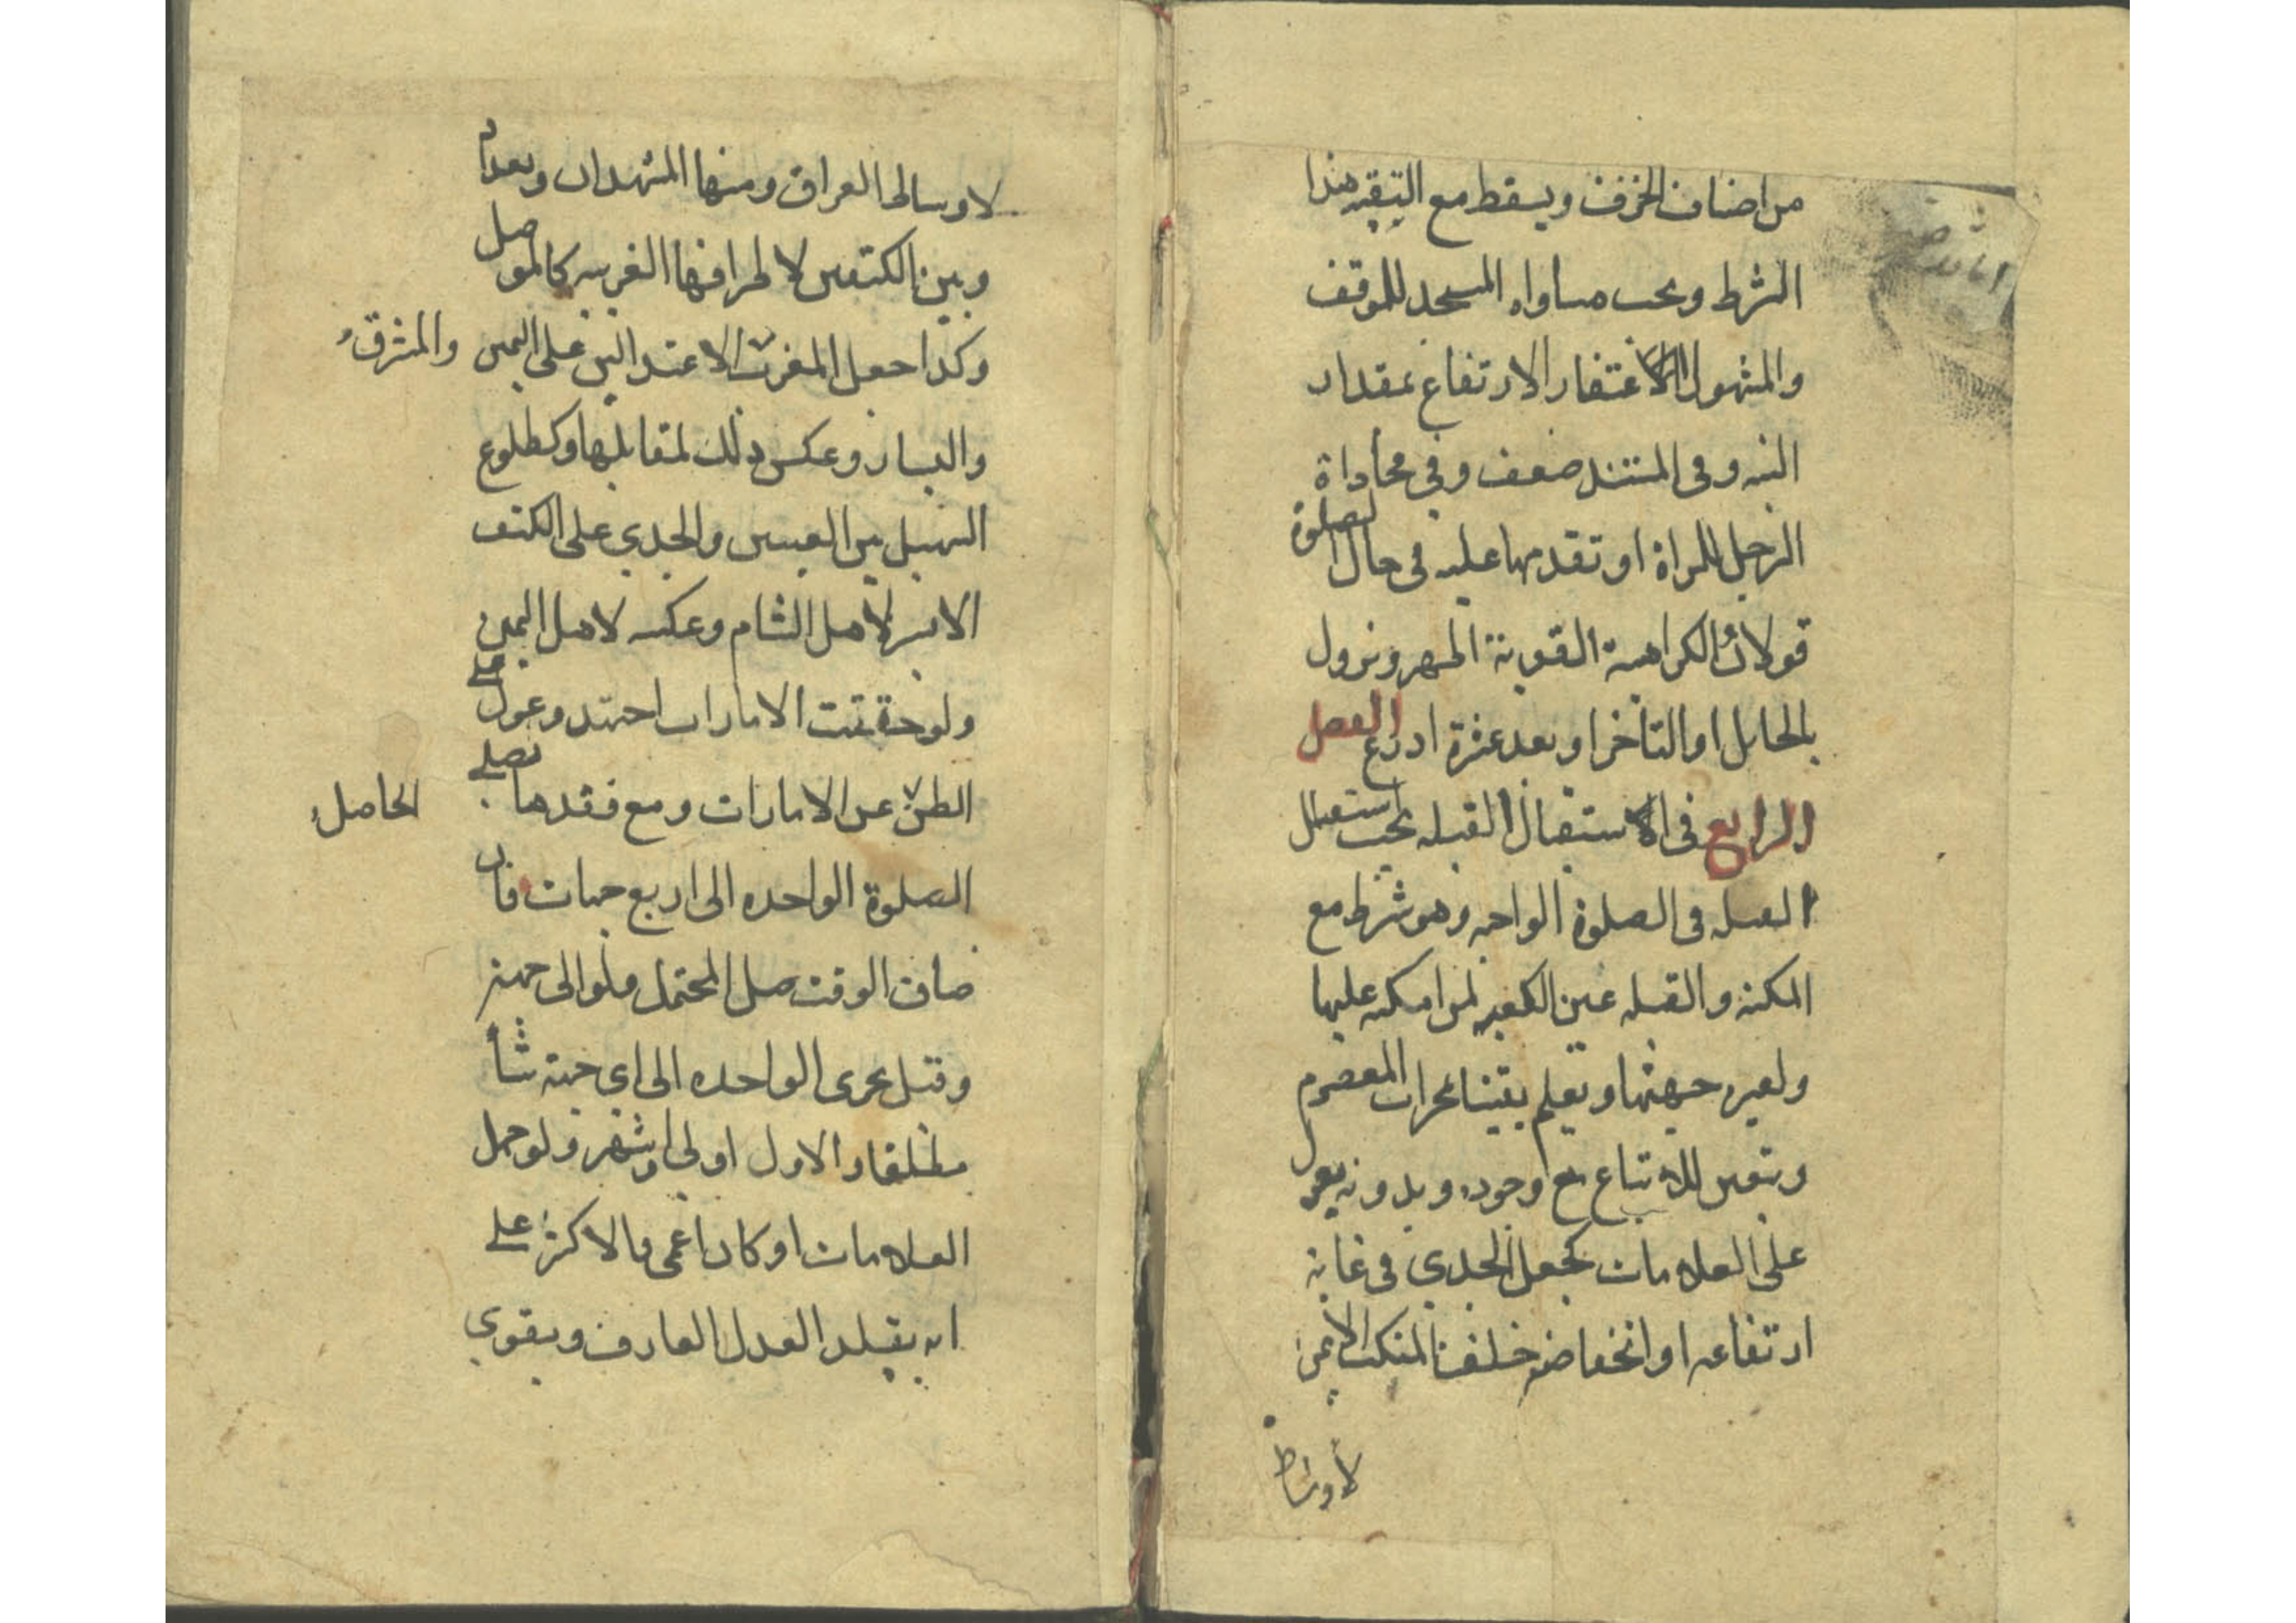 من اصناف الخزف ويسقط مع التقيه هذا
الشرط ويجب مساواه المسجد للموقف
والمشهور الاغتفار الارتفاع بمقدار
اللبنه وفى المستند ضعف وفي محاذاة
الرجل للمراة او تقدمها عليه فى حال الصلوة
قولان الكراهية القوية اظهر ويزول
بالحايل او التأخر او بعد عشرة اذرع الفصل
الرابع فى الاستقبال القبله يجب استقبال
القبله فى الصلوة الواجبه وهو شرط مع
المكنة والقبله عين الكعبه لمن امكنه علمها
ولغيره جهتها ويعلم يقينا بمحراب المعصوم
ويتعين للاتباع مع وجوده وبدونه يعول
على العلامات كجعل الجدي فى غاية
ارتفاعه او انخفاضه خلف المنكب الايمن
لأوساط
لاوساط العراق ومنها المشهدان وبغداد
وبين الكتفين لاطرافها الغربيه كالموصل
وكذا جعل المغرب الاعتدالين على اليمين والمشرق
واليسار وعكس ذلك لمقابلها وكطلوع
السهيل بين العينين والجدي على الكتف
الايسر لاهل الشام وعكسه لاهل اليمين
ولو خفيت الامارات اجتهد وعول على
الظن عن الامارات ومع فقدها يصلى
الحاصل
الصلوة الواحده الى اربع جهات فان
ضاق الوقت صلى المحتمل ولو الى جهة
وقيل يجزى الواحده الى اي جهة شأ
مطلقا والاول اولى واشهر ولو جهل
العلامات او كان اعمى فالاكثر على
انه يقلد العدل العارف ويقوي